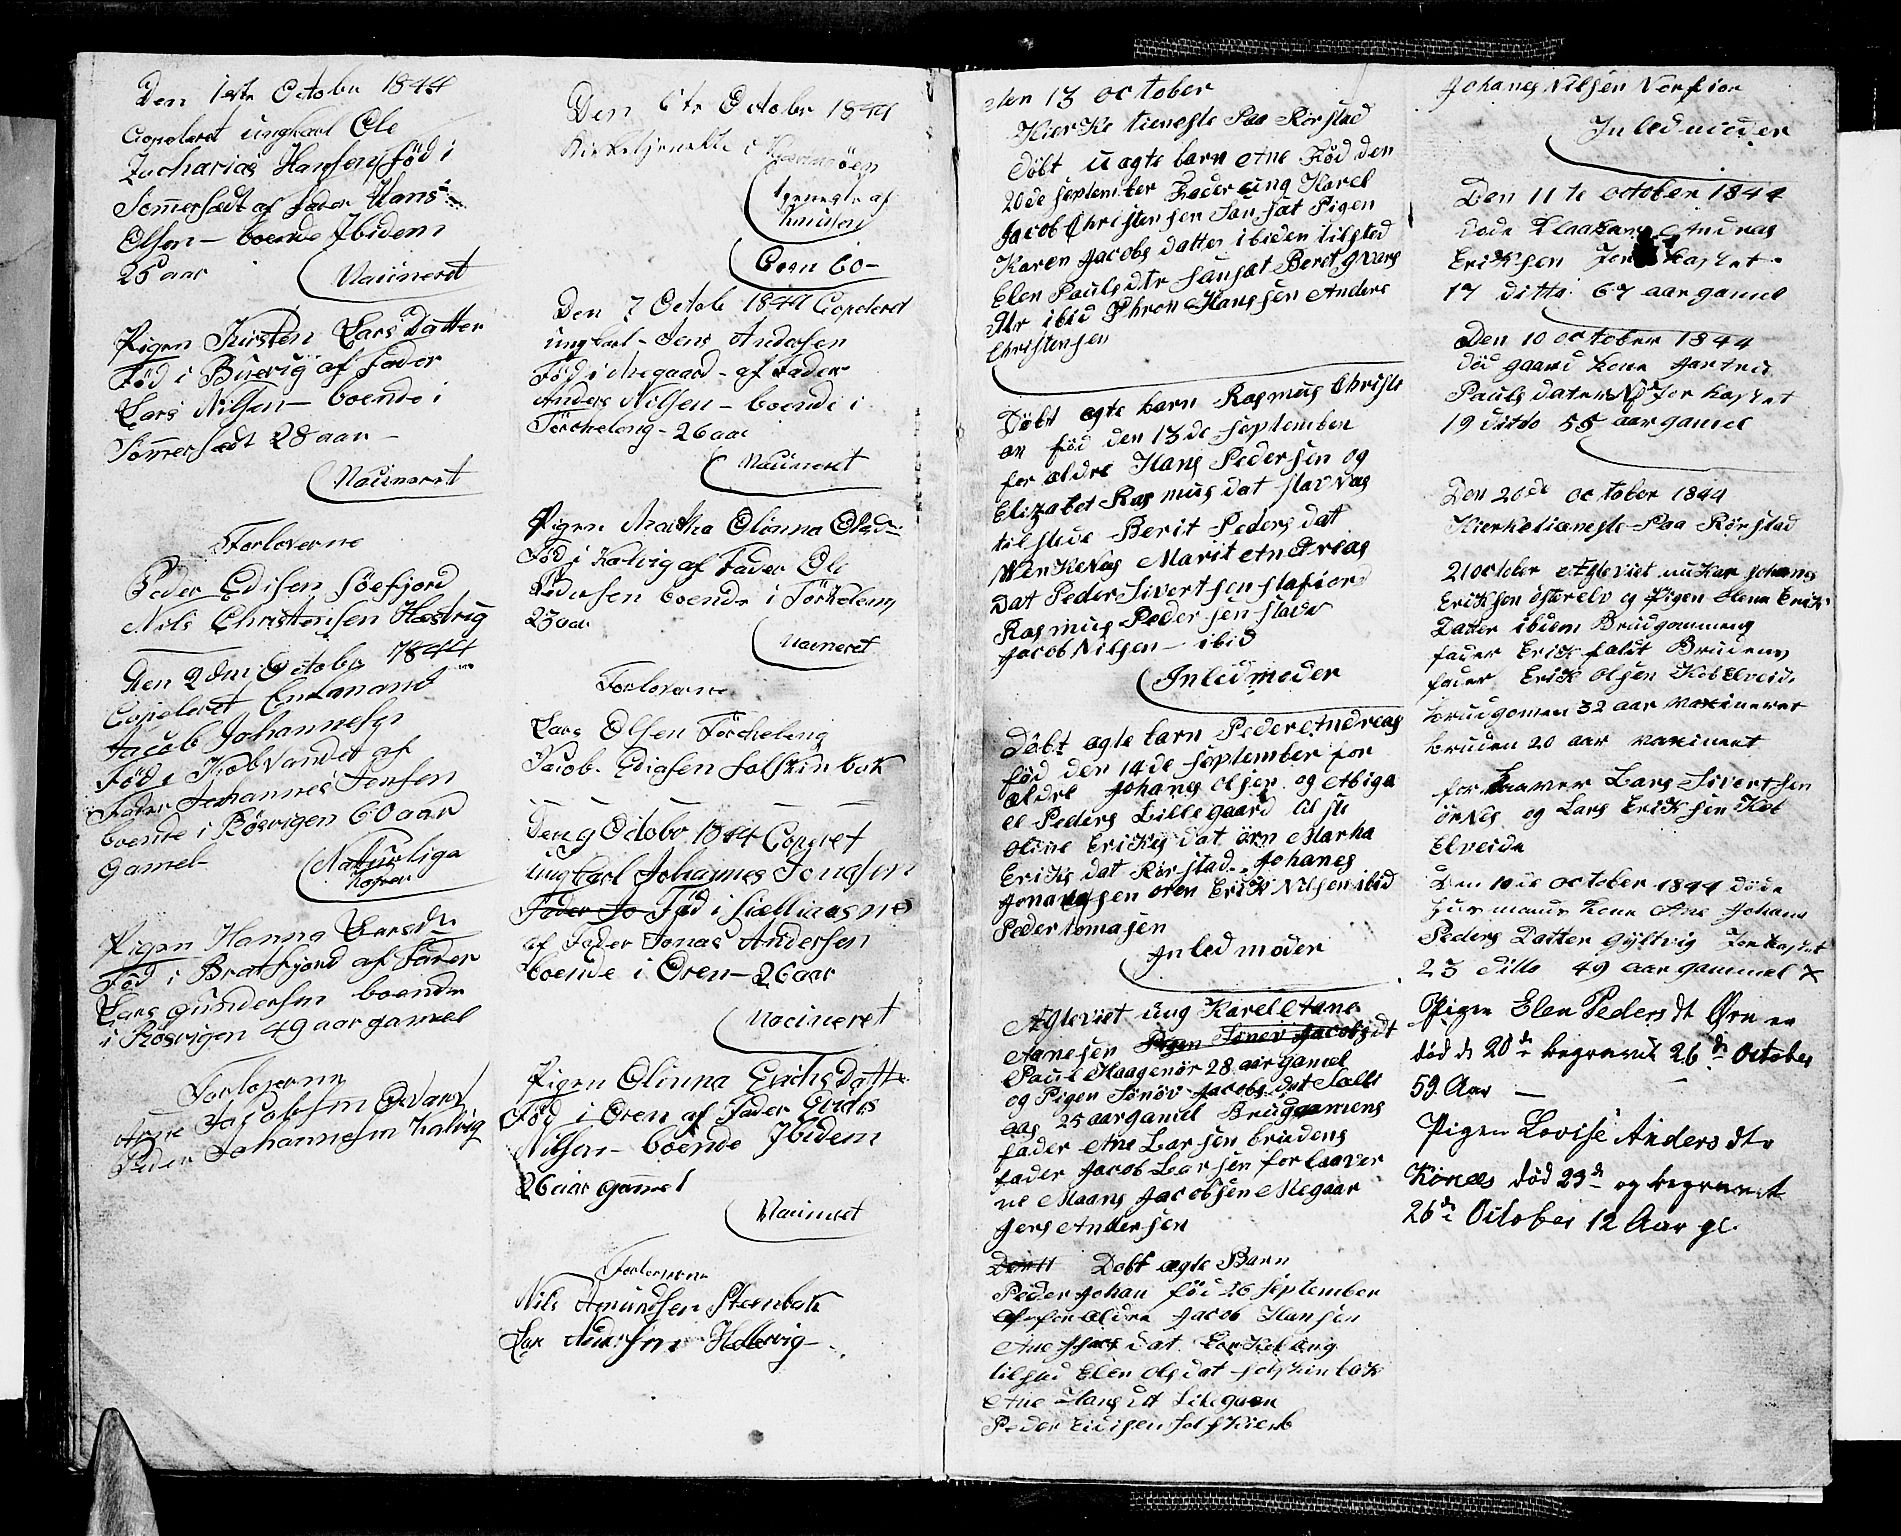 Den 1ste October 1844
Copoleret ungkarl Ole
Zacharias Hansen föd i
Sommersædt af fader Hans
Olsen - boende Ibidem
26 aar
Vacineret
Pigen Kirsten Lars Datter
Föd i Buevig af fader
Lars Nilsen - boende i
Sommersædt 28 aar -
Vacineret
Forloverne
Peder Edisen Söefjord
Nils Christensen Hestvig
Den 2den October 1844
Copoleret Enkemand
Jacob Johannesen
Föd i Kobvandet af
Fader Johannes Jensen
boende i Røsvigen 60 aar
Gamel
Naturliga
Kopper
Pigen Hanna Larsdtr
Föd i Bratfjord af Fader
Lars Gundersen boende
i Røsvigen 49 aar gamel
Forloverne
Arne Jacobsen Evans
Peder Johannesen Kalvig
Den 6te October 1844
Kirketjeneste i
tjeneste af
Knudsen
Den 7 Octob 1844 Copolered
ungkarl - Jens Andersen
Föd i Megaard - af Fader
Anders Nilsen - boende i
Törcheleng - 26 aar
Vacineret
Pigen Martha Olinna Olsd
Föd i Kalvig af Fader Ole
Pedersen boende i Törkeleng
23 aar
Vacineret
Forloverne
Lars Olsen Törcheleng
Jacob Ediasen Solskinbak
Den 9 Octobr 1844 Coporet
ungkarl Johannes Jonasen
Fader Jo Föd i
af Fader Jonas Andersen
boende i Oren - 26 aar
Vacineret
Pigen Olinna Erichs Datte
Föd i Oren af Fader Erichs
Nilsen - boende Ibidem
26 aar gamel
Vacineret
Forloverne
Nils Amundsen Steenbak
Lars Andersen Hellervig
Den 13 October
Kierke tieneste Paa Rörstad
Döbt uagte barn Ane Föd den
20de September Fader ung Karel
Jacob Christensen Sansæt Pigen
Karen Jacobs datter ibiden tilsted
Elen Pauls dtr Sansæt Beret
dtr ibid Hanssen Anders
Christensen
Döbt agte barn Rasmus Christi
an föd den 13de September
for ældre Hans Pedersen og
Elizabet Rasmus dat Slavvas
tilstede Berit Peders dat
Marit Andreas
Dat Peder Sivertsen slafiord
Rasmus Pedersen slavv
Jacob Nilsen - ibid
Inledmoder
Döbt agte barn Peder Andreas
föd den 14de September for
ældre Johans Olsen og Abiga
el Peders Lillegaard til ste
Oline Ericks dat örn Marha
Ericks dat Rörstad Johanes
Jonassen oren Erick Nilsen ibid
Peder tomasen
Inled moder
Agteviet ung Karel Arne
Arnesen Pigen Sönev Jacobs dt
Paul Haagenör 28 aar gamel
og Pigen Sönöv Jacobs dat
aas 25 aar gamel Brudgamens
fader Ane Larsen brudens
fader Jacob Larsen forlaaver
ne Maans Jacobsen Megaar
Jens Andersen
Döbt agte Barn
Peder Johan föd 26 September
forældre Jacob Hansen
Ane dat Törkelang
tilstad Elen Ols dat solskin bak
Ane Hans dt Lilegaar
Peder Eidisen
Johanes Nilsen Norfior
Inledmoder
Den 11te October 1844
döde Andreas
Ericksen Jord kastet
17 ditto 67 aar gamel
Den 10 October 1844
död gaard kone
Pauls dater Jorkastet
19 ditto 55 aar gamel
Den 20de October 1844
Kierketianeste Paa Rörstad
21 October Agteviet Johans
Ericksen österelv og Pigen Elena Erick
Datter ibiem Brudgommens
fader Erick Brudens
fader Erick Olsen Kobelveid
brudgomen 32 aar vaxineret
bruden 20 aar vaxineret
forlaaver Lars Sivertsen
örNes og Lars Ericksen Kob
Elveide
Den 10de October 1844 döde
huusmands kone Ane Johana
Peders Datter Gyltvig Jorkastet
23 ditto 49 aar gammel x
Pigen Elen Peders dt Ørn er
död d 20de begravet 26de October
59 Aar —
Pigen Lovise Anders dtr
død 23de og begravet
26de October 12 Aar gl.